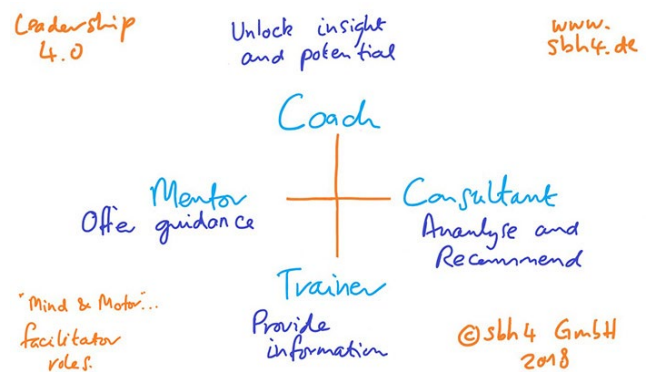 Leadership
4.0
Unlock insight
and potential
www.
sbh4.de
Coach
Mentor
Offer guidance
Consultant
Ananlyse and
Recommend
Trainer
Provide
information
"Mind & Motor"...
facilitator
roles.
©sbh4 GmbH
2018